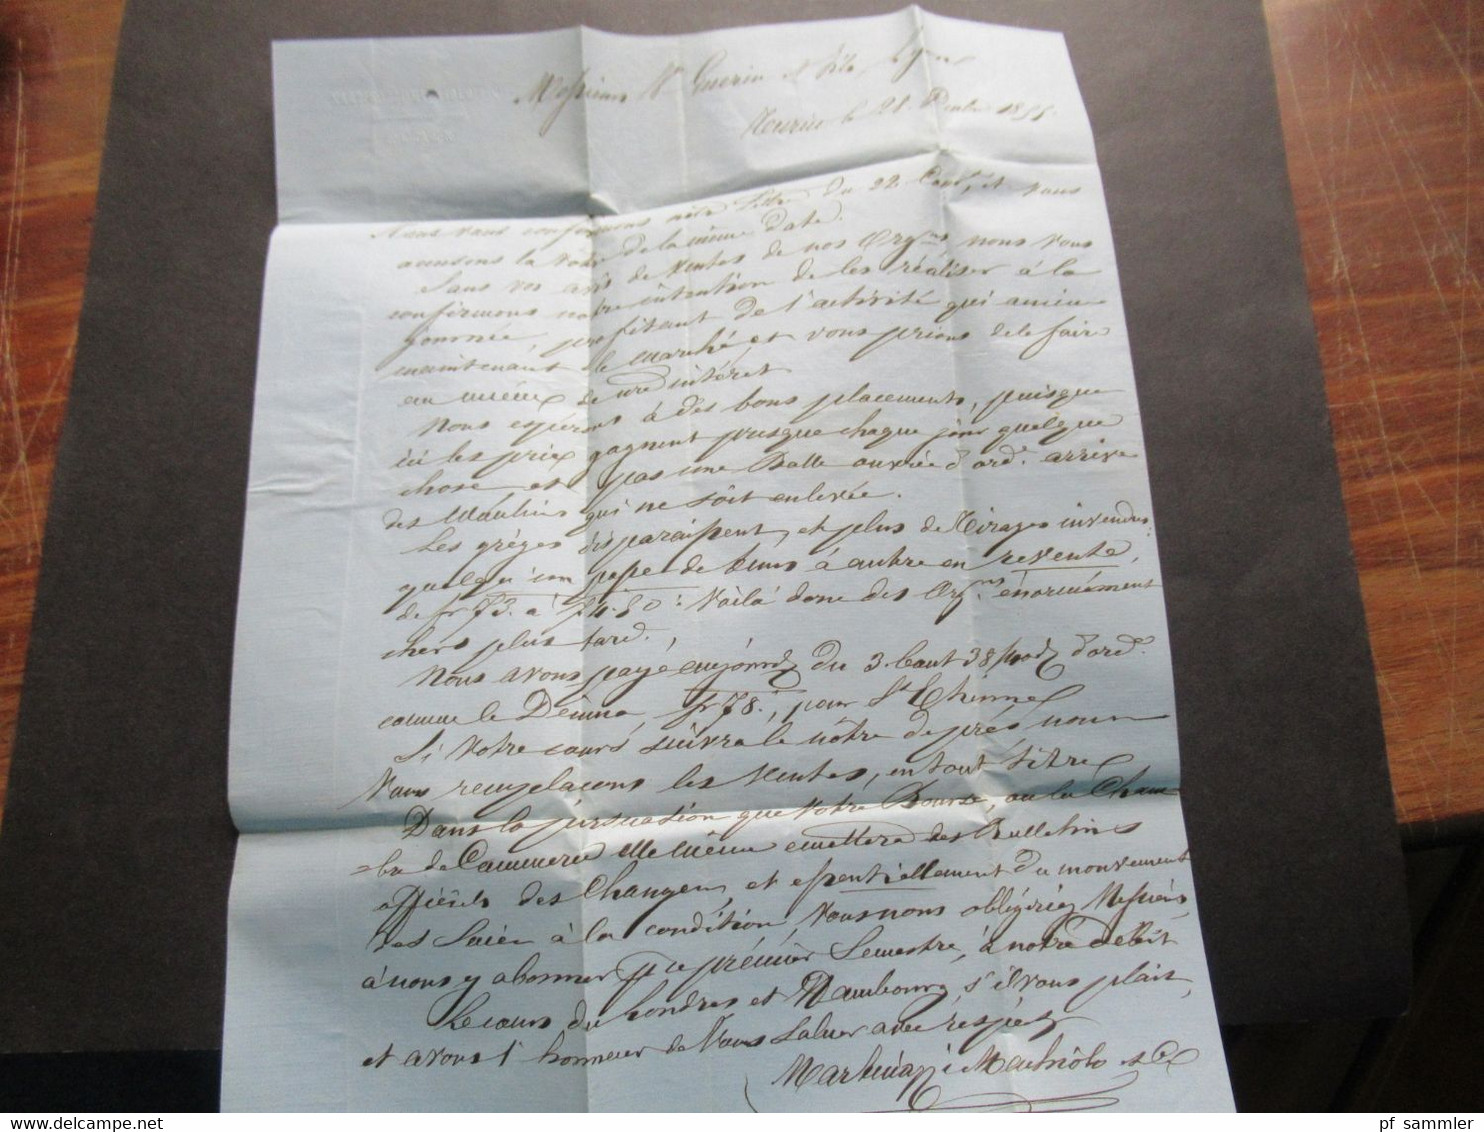 Messieurs Vve Guerin & fils, Lyon
Turin le 28 Xembre 1855.
Nous vous confirmons notre Lettre du 22 Cour.t, et vous
accusons la Vôtre de la même date.
Sans vos avis de Ventes de nos Org.ns nous Vous
confirmons notre intention de les réaliser à la
journée, profitant de l'activité qui anime
maintenant le marché et vous prions de le faire
au mieux de notre intérêt.
Nous espérons à des bons placements, puisque
ici les prix gagnent presque chaque jour quelque
chose et pas une Balle ouvrée d'ord.e arrive
des Moulins qui ne soit enlevée.
Les grèges disparaissent, et plus de Tirages invendus:
quelqu'un passe de suns à autre en revente,
de fr 73. à 74.50: Voilà donc des Org.ns énormément
chers plus tard.
Nous avons payé aujourd' du 3 bout 38 d'ord.e
comme le Démina, fr 78., pour St Etienne
Si Votre cours suivra le nôtre de près nous
Vous remplaçons les Ventes, en tout titre
Dans la persuation que Votre Bourse, ou la Cham
=bre de Commerce elle même emettera des Bulletins
officiels des Changes, et essentiellement du mouvement
des Soies à la condition, Vous nous obligeriez Messieurs,
à nous y abonner pr ce prémier Semestre, à notre débit
Le cours du Londres et Hambourg, s'il vous plait,
et avons l'honneur de Vous saluer avec respect
Martinazzi Machiolo & C.e
pf_sammler